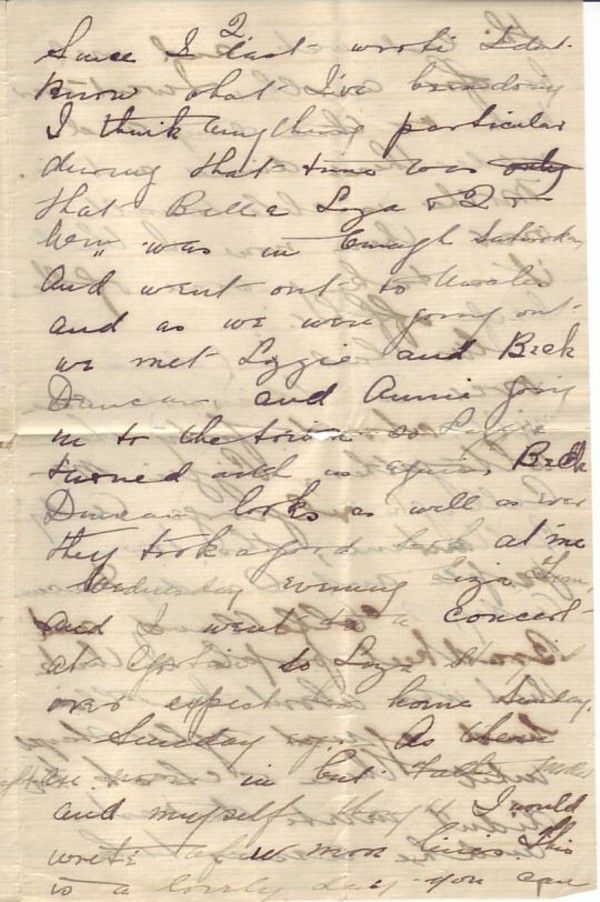 2.
Since I last wrote I dont
know what I've been doing
I think anything particular
during that time was only
that Bell & Liza & I &
was in Saturday
and went out to
and as we were going out
we met Lizzie and Beck
Duncan and Annie going
in to the town so Lizzie
turned with us again, Beck
Duncan looks as well as ever
they took a good look at me
Wednesday evening Liza
and I went to a concert
at so Liza
over expect home Sunday.
Sunday As there
are in but Father
and myself I would
write a few more lines This
is a lovely day you can